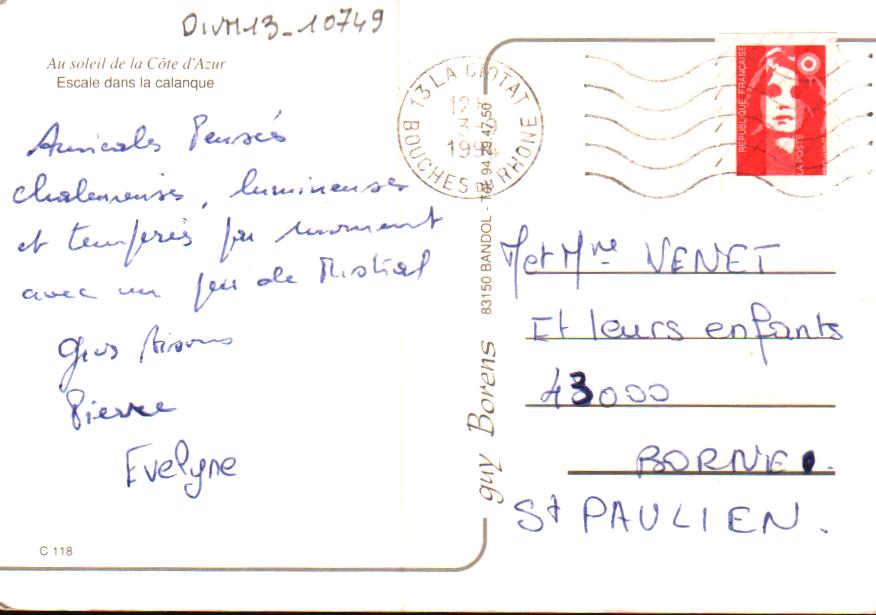 DIVM13_10749
Au soleil de la Côte d'Azur
Escale dans la calanque
Amicales Pensées
chaleureuses, lumineuses
et tempérés par moment
avec un peu de Mistral
Gros Bisous
Pierre
Evelyne
C 118
13 LA CIOTAT
BOUCHES DU RHONE
12
3
199
guy Borens
83150 BANDOL - Tél. 94 29 47 50
REPUBLIQUE FRANÇAISE
LA POSTE
M et Mme VENET
Et leurs enfants
43000
BORNE.
St PAULIEN.